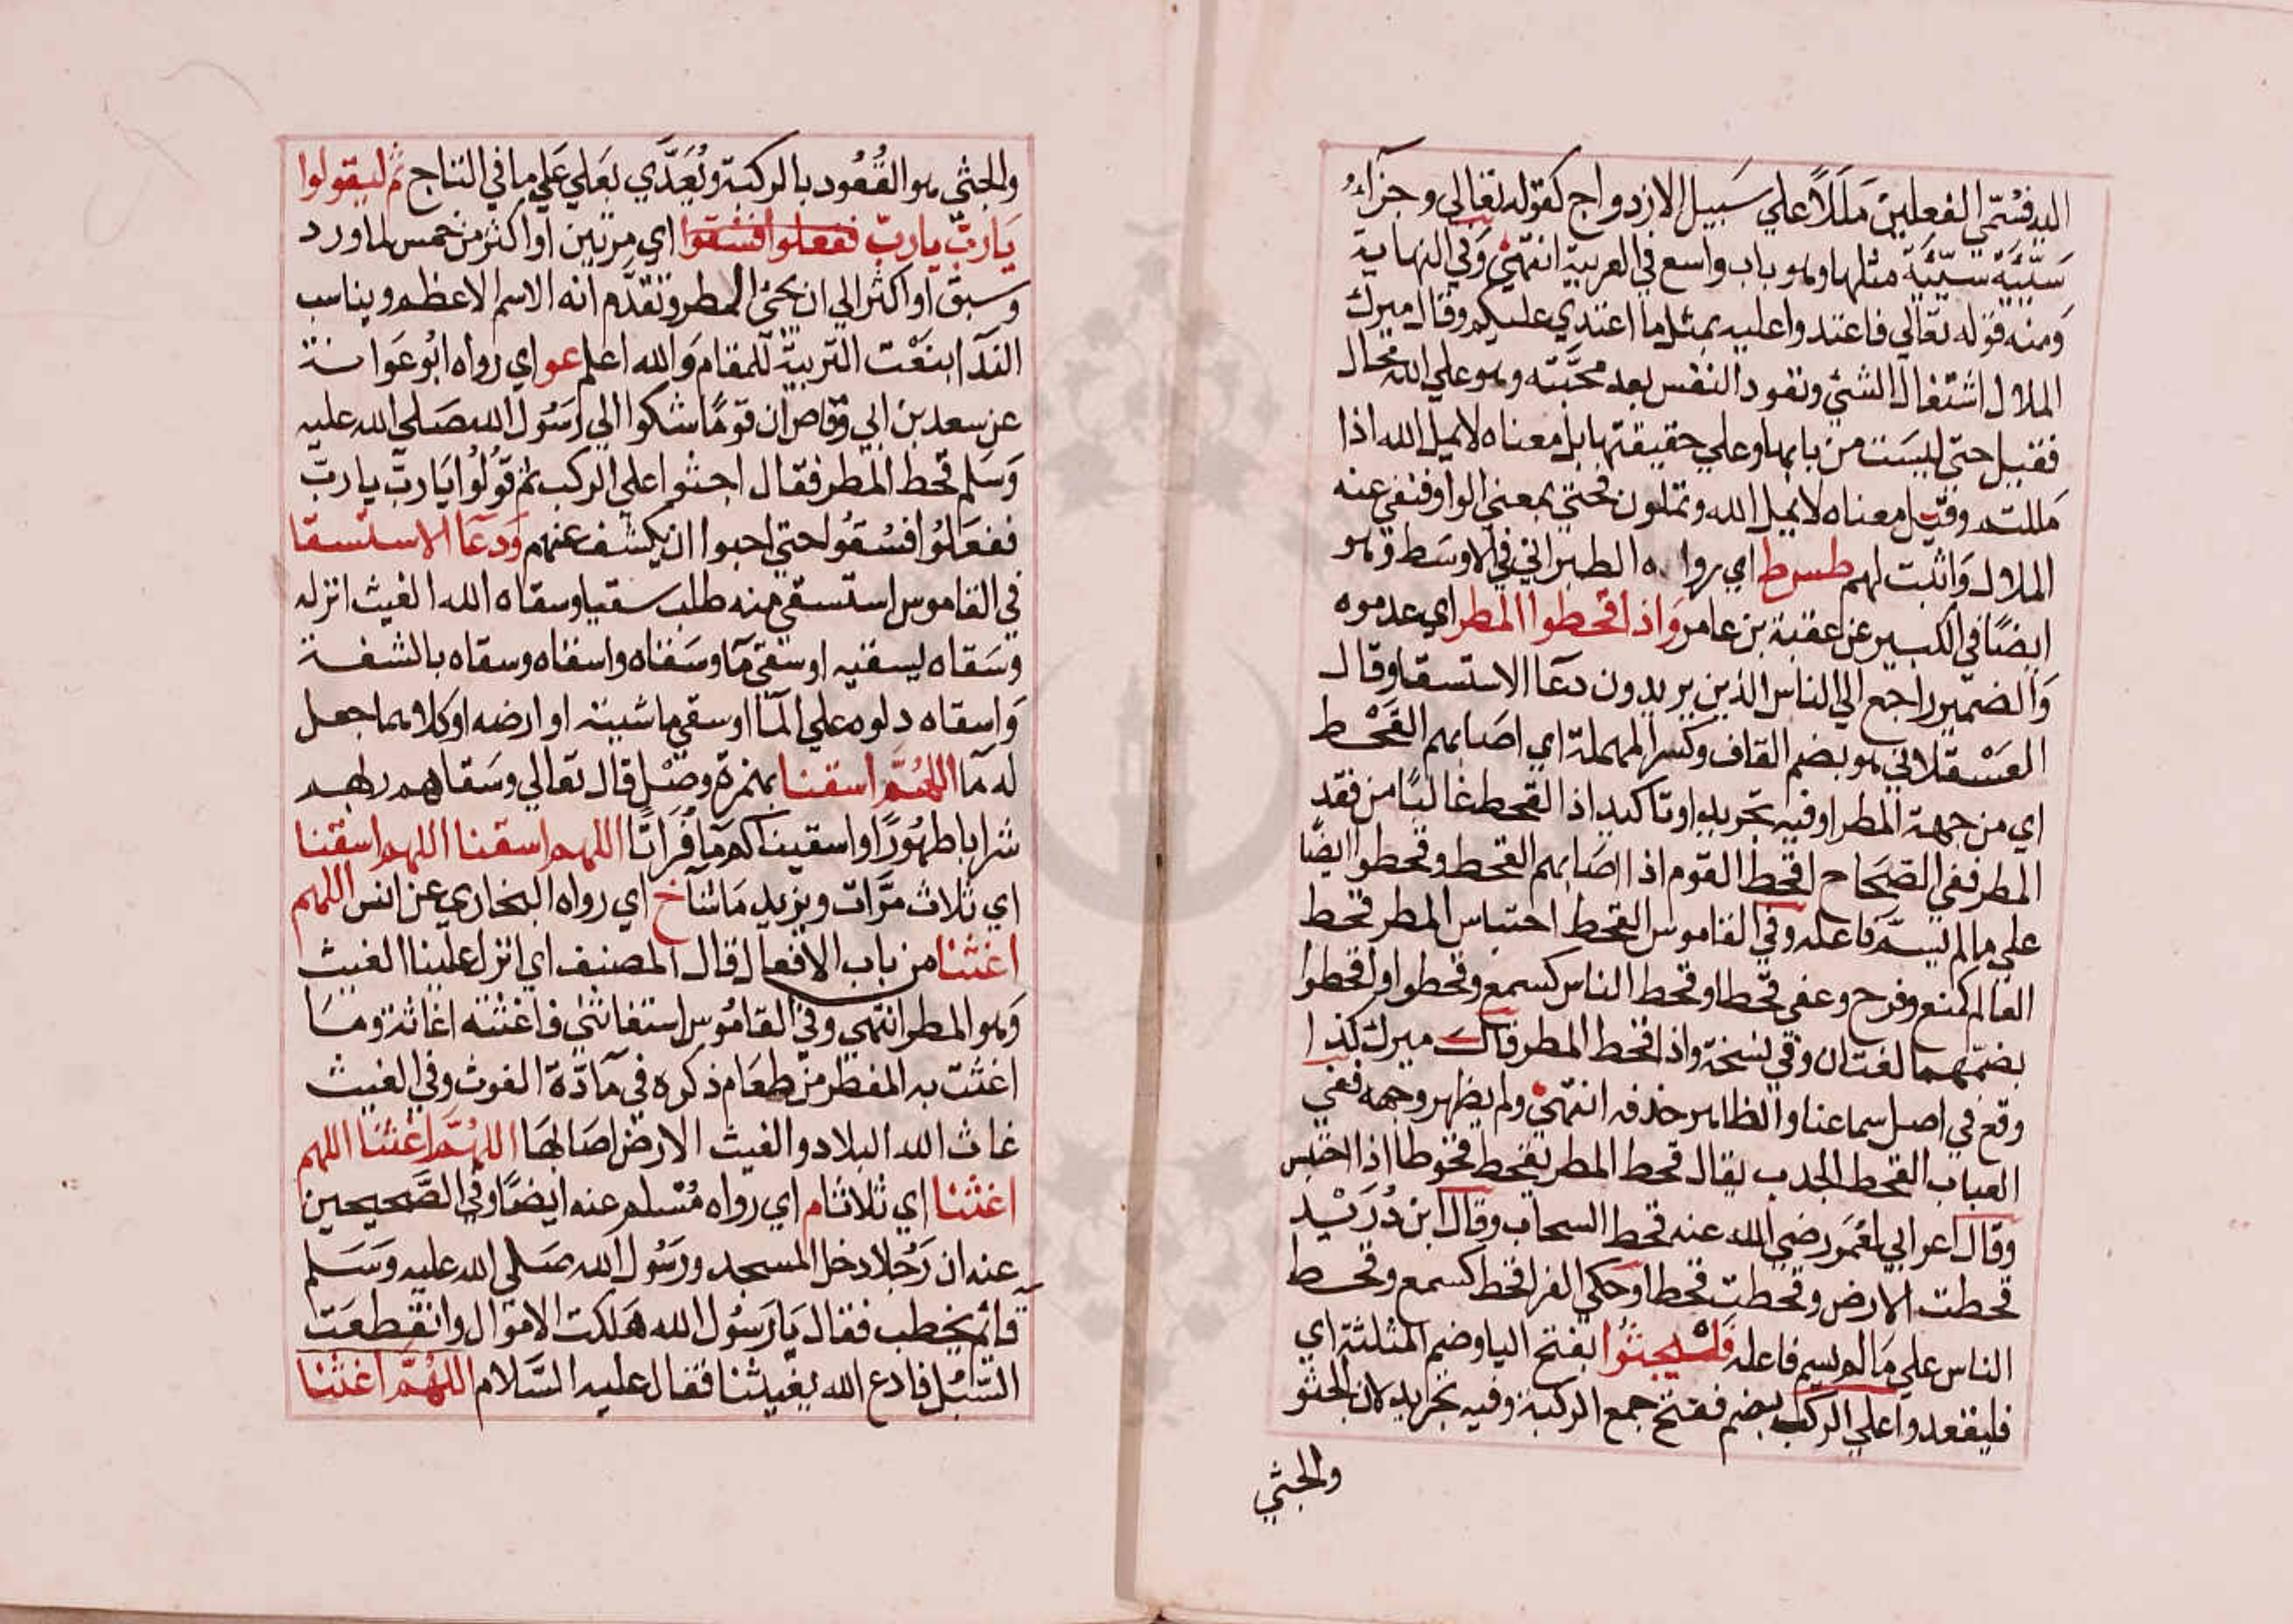 اليه فسُمّي الفعلين مَلَلاً علي سَبيل الازدواج كقوله تعَالي وجزآءُ
سَيّئَة سَيّئَة مثلها وهو باب واسع في العربية انتهىٰ وَفي النهاية
وَمنه قوله تعَالي فاعتدوا عليه بمثل ما اعتدي عليكم وقال ميرك
الملال اشتغال الشئ ونفود النفس بعد محَبَّته وهو علي الله محال
فقيل حتى ليسَت من بابها وعلي حقيقتها بل معناه لا يمل الله اذا
مَللتم وقيل معناه لا يمل الله وتملون فحتي بمعني الواو فنفي عنه
الملال وَاثبت لهم طس ط اي رواه الطبراني في الاوسَط وَهو
ايضًا في الكبير عن عقبة بن عامر وَاذا قحطوا المطر اي عدموه
وَالضمير راجع الي الناس الذين يريدون دعَآ الاستسقا وقال
العَسْقلاني هو بضم القاف وكسر المهملة اي اصَابهم القَحْط
اي من جهة المطر او فيه تجريد او تاكيد اذ القحط غالبًا من فقد
المطر ففي الصّحَاح اقحط القوم اذا اصَابهم القحط وقحطوا ايضًا
علي ما لم يسَمّ فاعله وفي القاموس القحط احتباس المطر قحط
العالم كمنع وفرح وعفي قحطا وقحط الناس كسمع وقحطوا واقحطوا
بضمّهما لغتان وفي نسخة واذا قحط المطر قال ميرك كذا
وقع في اصل سماعنا والظاهر حذفه انتهىٰ ولم يظهر وجهه ففي
العباب القحط الجدب يقال قحط المطر يقحط قحوطا اذا احتبس
وقال اعرابي لعُمَر رضي الله عنه قحط السحاب وقال ابن دُرَيْد
قحطت الارض وقحطت قحطا وحكي الفرا قحط كسمع وقحط
الناس علي مَا لم يسم فاعله فَلْيجثُوا بفتح اليا وضم المثلثة اي
فليقعدوا علي الركب بضم ففتح جمع الركبة وفيه تجريد لان الجثو
والجثي
والجثي هو القُعُود بالركبة ويُعَدَّي بعَلي عَلي ما في التاج ثم ليقولوا
يَاربّ ياربّ ففعلوا فسُقوا اي مرتين او اكثر من خمس لما ورد
وسبق او اكثر الي ان يجئ المطر وتقدّم انه الاسم الاعظم ويناسب
الندَآ بنَعْت التربية للمقام وَالله اعلم عو اي رواه ابُو عَوانة
عن سعد بن ابي وقاص ان قومًا شكوا الي رَسُول الله صَلي الله عليه
وَسَلم قحط المطر فقال اجثوا علي الركب ثم قولُوا يَاربّ ياربّ
ففعَلوُا فسُقوُا حتي احبوا ان يكشف عنهم وَدعَآ الاستسقا
في القاموس استسقي منه طلب سقيا وسقاه الله الغيث انزله
وسَقاه يسقيه او سقي مآ وسَقاه واسقاه وسقاه بالشفة
وَاسقاه دلوه علي المآ او سقي ماشيته او ارضه او كلاهما جعل
له مآ اللهُمَّ اسقنا بهمزة وصْل قال تعالي وسَقاهم ربهم
شرابا طهُورًا واسقيناكم مآ فُرَاتًا اللهم اسقنا اللهم اسقنا
اي ثلاث مَرَّات ويزيد مَا شآ خ اي رواه البخاري عن انس اللهم
اغثنا من باب الافعال قال المصنف اي انزل علينا الغيث
وَهو المطر انتهي وفي القامُوس استغاثني فاغثته اغاثة ومَا
اغثت به المضطر من طعَام ذكره في مَادّة الغوث وفي الغيث
غاث الله البلاد والغيث الارض اصَابهَا اللهُمَّ اغثنا اللهم
اغثنا اي ثلاثا م اي رواه مُسْلم عنه ايضًا وفي الصَّحيحين
عنه ان رَجُلا دخل المسجد ورَسُول الله صَلي الله عليه وَسَلم
قائم يخطب فقال يَا رَسُول الله هَلكت الاموال وانقطعَت
السُّبُل فادع الله يغيثنا فقال عليه السَّلام اللهُمَّ اغثنا